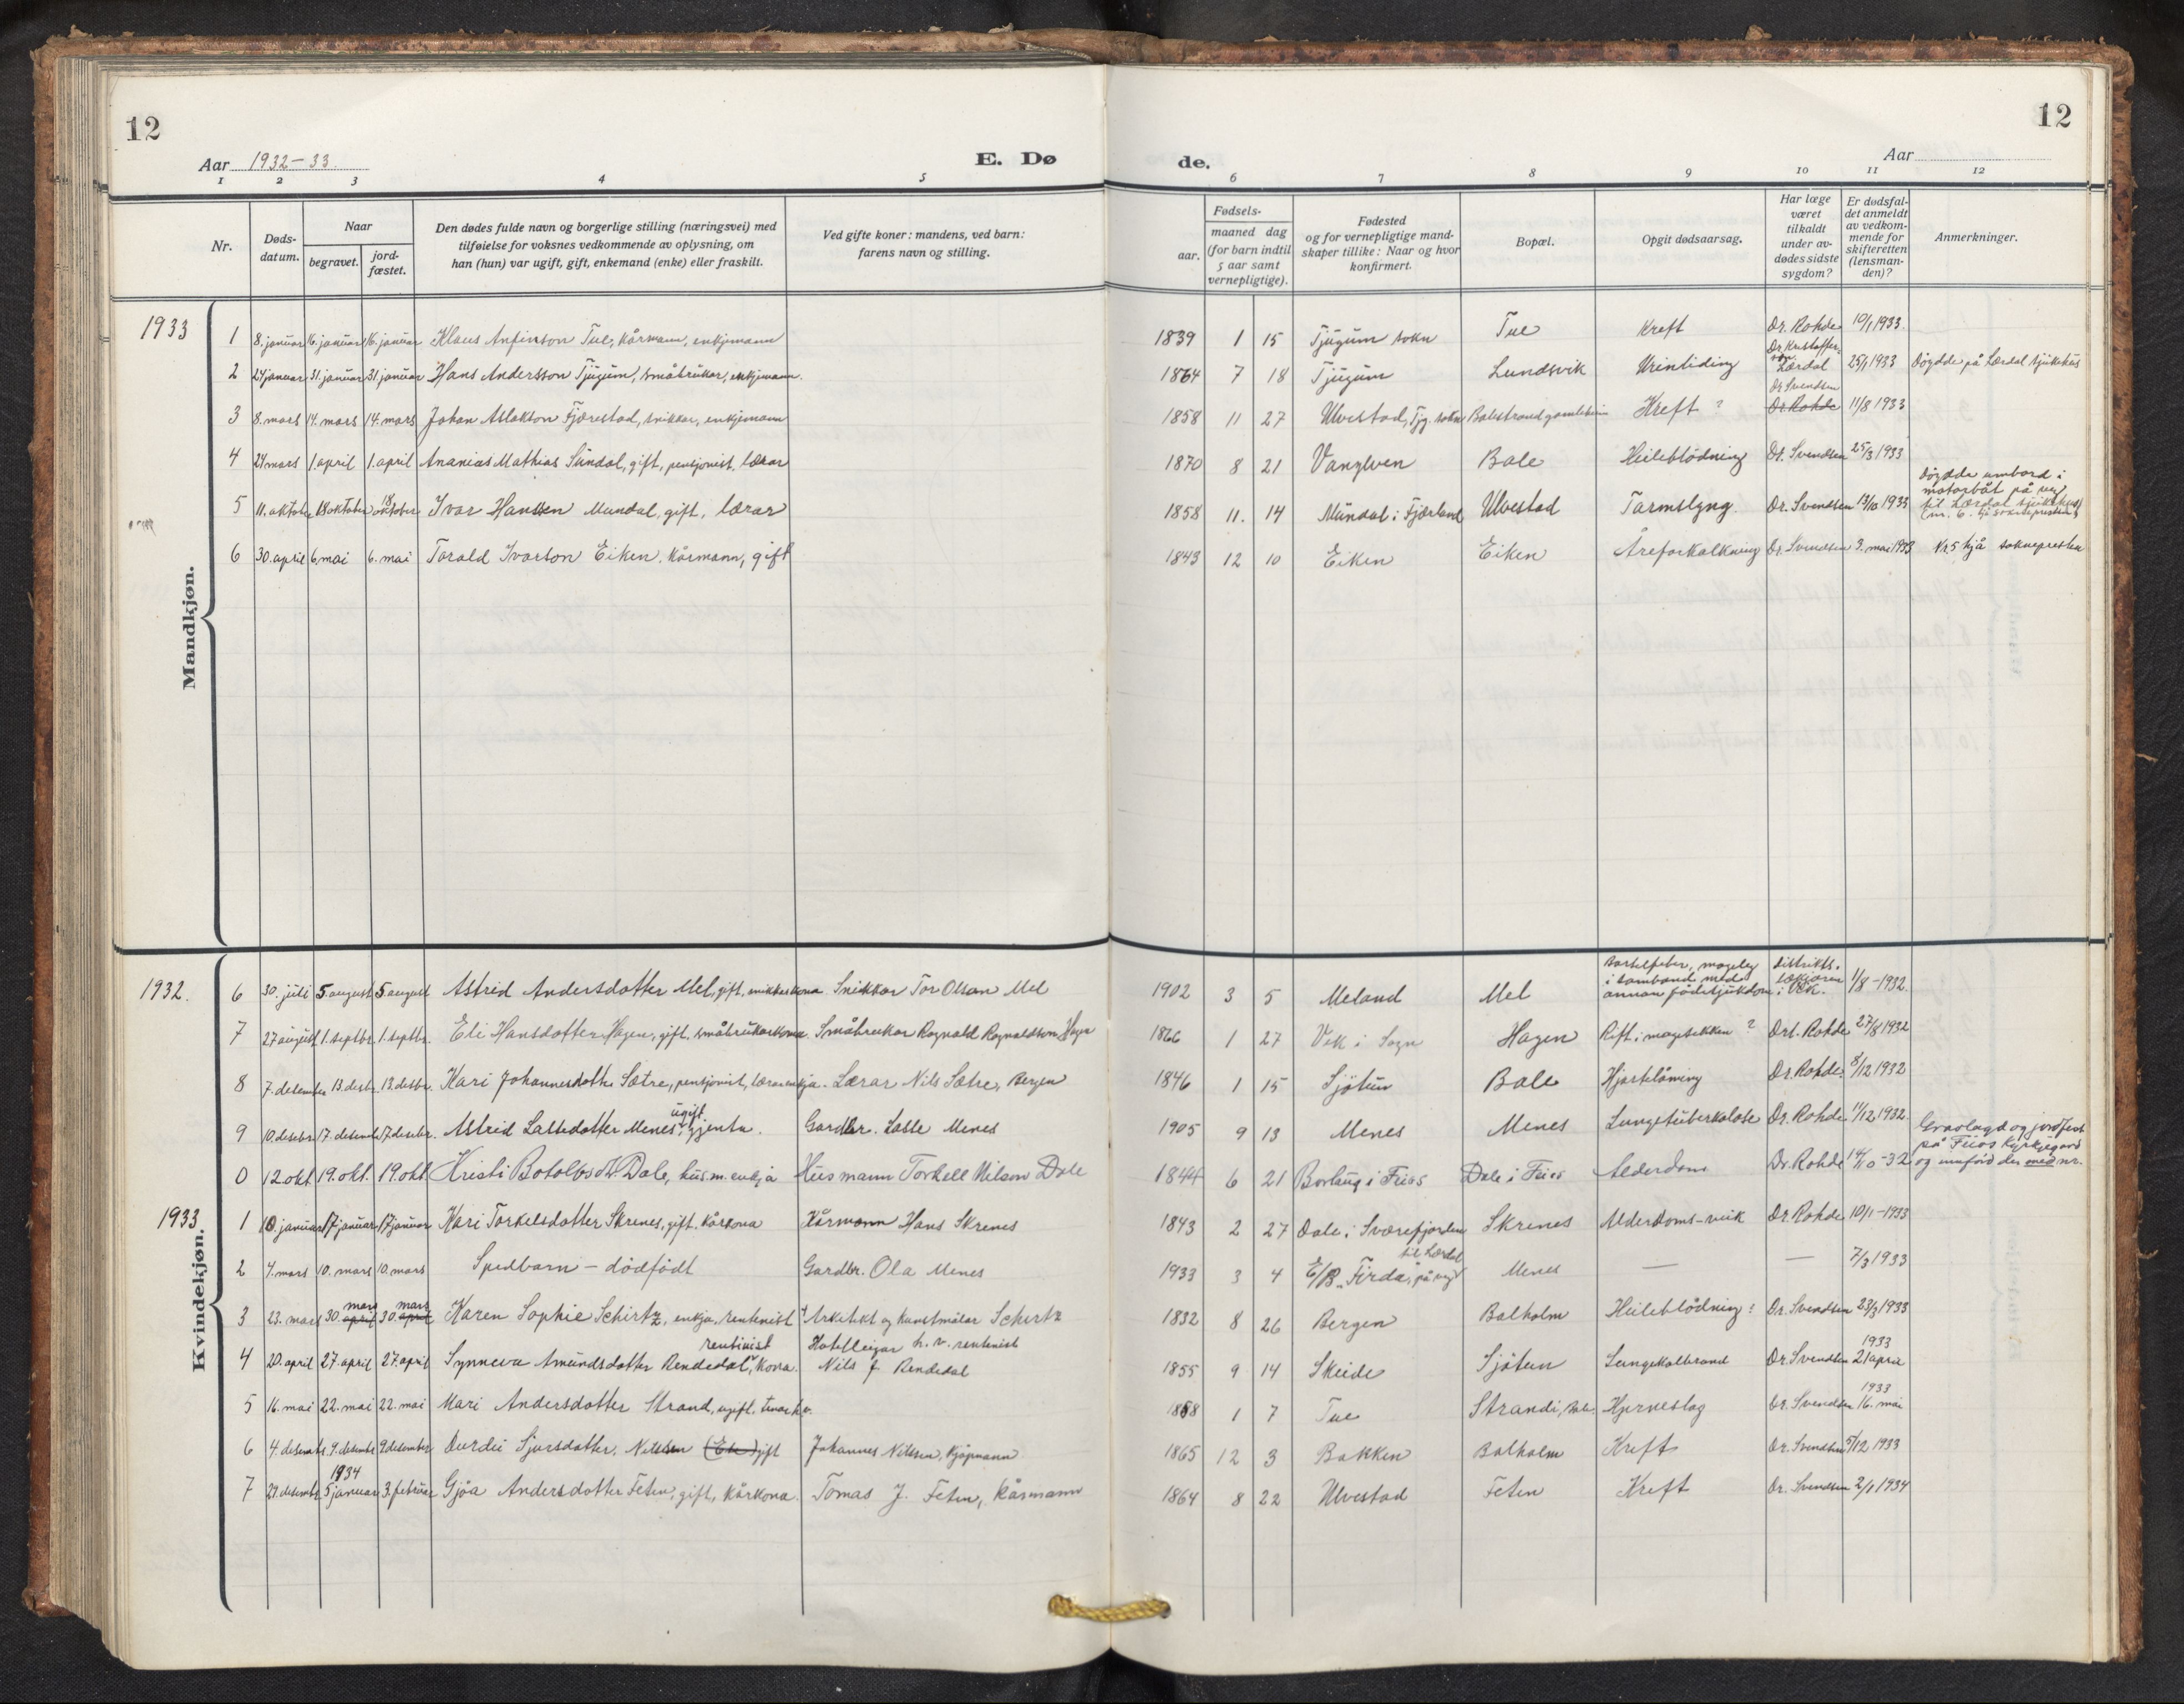 12
12
Aar 1932-33.
E. Dø
de.
Aar
1 2 3 4 5 6 7 8 9 10 11 12
Nr.
Døds-
datum.
Naar
begravet.
jord-
fæstet.
Den dødes fulde navn og borgerlige stilling (næringsvei) med
tilføielse for voksnes vedkommende av oplysning, om
han (hun) var ugift, gift, enkemand (enke) eller fraskilt.
Ved gifte koner: mandens, ved barn:
farens navn og stilling.
Fødsels-
aar.
maaned dag
(for barn indtil
5 aar samt
vernepligtige).
Fødested
og for vernepligtige mand-
skaper tillike: Naar og hvor
konfirmert.
Bopæl.
Opgit dødsaarsag.
Har læge
været
tilkaldt
under av-
dødes sidste
sygdom?
Er dødsfal-
det anmeldt
av vedkom-
mende for
skifteretten
(lensman-
den)?
Anmerkninger.
Mandkjøn.
1933
1 8. januar 16. januar 16. januar Klaus Anfinson Tue, kårmann, enkjemann 1839 1 15 Tjugum sokn Tue Kreft Dr. Rohde 10/1 1933.
2 24 januar 31. januar 31. januar Hans Andersson Tjugum, småbrukar, enkjemann. 1864 7 18 Tjugum Lundsvik Urintiding Dr. Kristoffer- Lærdal 25/1 1933 Döydde på Lærdal sjukehus
3 8. mars 14. mars 14. mars Johan Aslakson Fjærestad, snikkar, enkjemann 1858 11 27 Ulvestad, Tjg. sokn Balestrand gamleheim Kreft ? Dr. Svendsen Dr. Rohde 11/8 1933
4 24 mars 1. april 1. april Ananias Mathias Sundal, gift, pensjonist, lærar 1870 8 21 Vanylven Bale Heileblödning Dr. Svendsen 25/3 1933
5 11. oktober 18 oktober 18 oktober Ivar Hanssen Mundal, gift, lærar 1858 11. 14 Mundal i Fjærland Ulvestad Tarmslyng. Dr. Svendsen 13/10 1933 Döydde umbord i
motorbåt på veg
til Lærdal sjukehus
(nr. 6. hjå soknepresten)
6 30. april 6. mai 6. mai Torald Ivarson Eiken, kårmann, gift 1843 12 10 Eiken Eiken Åreforkalkning Dr. Svendsen 3. mai 1933 Nr. 5 hjå soknepresten
Kvindekjøn.
1932.
6 30. juli 5. august 5 august Astrid Andersdotter Mel, gift, snikkarkona Snikkar Tor Olson Mel 1902 3 5 Meland Mel Barselfeber, mogeleg
i samband med
annan födesjukdom distrikts-
lækjaren
i Vik. 1/8-1932.
7 27 august 1. septbr. 1. septbr. Eli Hansdotter Hagen, gift, småbrukarkona. Småbrukar Ragnald Ragnaldson Hagen 1866 1 27 Vik i Sogn Hagen Rift i magesekken ? Dr. Rohde 27/8 1932
8 7. desember 13. desbr. 13. desbr. Kari Johannesdotter Sætre, pensjonist, lærarenkja. Lærar Nils Sætre, Bergen 1846 1 15 Sjötun Bale Hjartelåming Dr. Rohde. 8/12 1932
9 10. desebr. 17. desembr 17 desebr. Astrid Lassedotter Menes, ugift gjenta. Gardbr. Lasse Menes 1905 9 13 Menes Menes Lungetuberkulose Dr. Rohde 11/12 1932.
0 12. okt. 19. okt. 19. okt. Kristi Botolvsdt. Dale, husm. enkja Husmann Torkell Nilson Dale 1844 6 21 Borlaug i Feios Dale i Feios Alderdom Dr. Rohde 14/10-32 Gravlagd og jordfest
på Feios kyrkjegard
og innförd der med nr.
1933
1 10 januar 17 januar 17 januar Kari Torkelsdotter Skrenes, gift. Kårkona Kårmann Hans Skrenes 1843 2 27 Dale i Sværefjorden Skrenes Alderdoms-veik Dr. Rohde 10/1-1933
2 4. mars 10. mars 10. mars Spedbarn - dödfödt Gardbr. Ola Menes 1933 3 4 E/B "Firda", på veg til Lærdal Menes — — 7/3 1933
3 23. mars 30. april mars 30. april mars Karen Sophie Schirtz, enkja, rentenist Arkitekt og kunstmålar Schirtz 1832 8 26 Bergen Balholm Heileblödning? Dr. Svendsen 23/3 1933
4 20. april 27. april 27. april Synneva Amundsdotter Rendedal, rentinist kona. Hotelleigar h. v. rentenist
Nils J. Rendedal 1855 9 14 Skeide Sjötun Lungekolbrand Dr. Svendsen 21 april 1933
5 16. mai 22. mai 22. mai Mari Andersdotter Strand, ugift, 1868 1 7 Tue Strandi, Bale. Hjerneslag Dr. Svendsen 16. mai 1933
6 4. desembr 9. desembr 9 desember Durdei Sjursdotter, Nilssen gift Johannes Nilssen, kjöpmann 1865 12 3 Bakken Balholm Kreft Dr. Svendsen 5/12 1933
7 29. desembr 5 januar 1934 3. februar Gjöa Andersdotter Feten, gift, kårkona. Tomas J. Feten, kårmann 1864 8 22 Ulvestad Feten Kreft Dr. Svendsen 2/1 1934